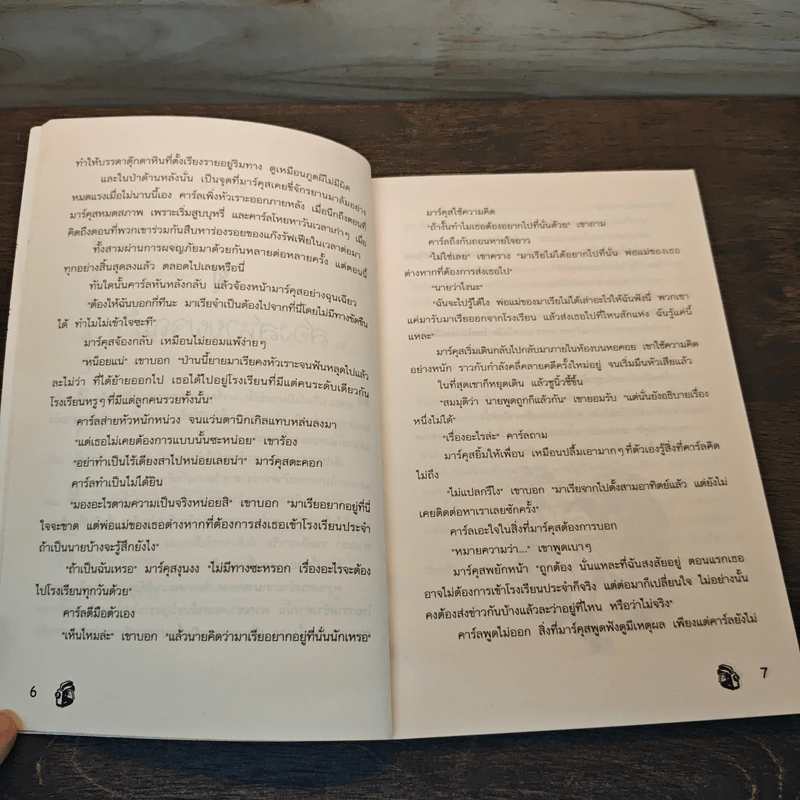 ทำให้บรรดาตุ๊กตาหินที่ตั้งเรียงรายอยู่ริมทาง ดูเหมือนภูตผีไม่มีผิด
และในป่าด้านหลังนั่น เป็นจุดที่มาร์คุสเคยขี่จักรยานมาล้มอย่าง
หมดแรงเมื่อไม่นานนี้เอง คาร์ลเพิ่งหัวเราะออกภายหลัง เมื่อนึกถึงตอนที่
มาร์คุสหมดสภาพ เพราะเริ่มสูบบุหรี่ และคาร์ลโหยหาวันเวลาเก่าๆ เมื่อ
คิดถึงตอนที่พวกเขาร่วมกันสืบหาร่องรอยของแก๊งรัฟเฟียในเวลาต่อมา
ทั้งสามผ่านการผจญภัยมาด้วยกันหลายต่อหลายครั้ง แต่ตอนนี้
ทุกอย่างสิ้นสุดลงแล้ว ตลอดไปเลยหรือนี่
ทันใดนั้นคาร์ลหันหลังกลับ แล้วจ้องหน้ามาร์คุสอย่างฉุนเฉียว
"ต้องให้ฉันบอกกี่ทีนะ มาเรียจำเป็นต้องไปจากที่นี่โดยไม่มีทางขัดขืน
ได้ ทำไมไม่เข้าใจซะที"
มาร์คุสจ้องกลับ เหมือนไม่ยอมแพ้ง่ายๆ
"หน็อยแน่" เขาบอก "ป่านนี้ยายมาเรียคงหัวเราะจนฟันหลุดไปแล้ว
ละไม่ว่า ที่ได้ย้ายออกไป เธอได้ไปอยู่โรงเรียนที่มีแต่คนระดับเดียวกัน
โรงเรียนหรูๆ ที่มีแต่ลูกคนรวยทั้งนั้น"
คาร์ลส่ายหัวหนักหน่วง จนแว่นตานิกเกิลแทบหล่นลงมา
"แต่เธอไม่เคยต้องการแบบนั้นซะหน่อย" เขาร้อง
"อย่าทำเป็นไร้เดียงสาไปหน่อยเลยน่า" มาร์คุสตะคอก
คาร์ลทำเป็นไม่ได้ยิน
"มองอะไรตามความเป็นจริงหน่อยสิ" เขาบอก "มาเรียอยากอยู่ที่นี่
ใจจะขาด แต่พ่อแม่ของเธอต่างหากที่ต้องการส่งเธอเข้าโรงเรียนประจำ
ถ้าเป็นนายบ้างจะรู้สึกยังไง"
"ถ้าเป็นฉันเหรอ" มาร์คุสงุนงง "ไม่มีทางซะหรอก เรื่องอะไรจะต้อง
ไปโรงเรียนทุกวันด้วย"
คาร์ลตีมือตัวเอง
"เห็นไหมล่ะ" เขาบอก "แล้วนายคิดว่ามาเรียอยากอยู่ที่นั่นนักเหรอ"
6
มาร์คุสใช้ความคิด
"ถ้างั้นทำไมเธอต้องอยากไปที่นั่นด้วย" เขาถาม
คาร์ลถึงกับถอนหายใจยาว
"ไม่ใช่เลย" เขาคราง "มาเรียไม่ได้อยากไปที่นั่น พ่อแม่ของเธอ
ต่างหากที่ต้องการส่งเธอไป"
"นายว่าไงนะ"
"ฉันจะไปรู้ได้ไง พ่อแม่ของมาเรียไม่ได้เล่าอะไรให้ฉันฟังนี่ พวกเขา
แค่มารับมาเรียออกจากโรงเรียน แล้วส่งเธอไปที่ไหนสักแห่ง ฉันรู้แค่นี้
แหละ"
มาร์คุสเริ่มเดินกลับไปกลับมาภายในห้องบนหอคอย เขาใช้ความคิด
อย่างหนัก ราวกับกำลังคลี่คลายคดีครั้งใหม่อยู่ จนเริ่มมึนหัวเสียแล้ว
ในที่สุดเขาก็หยุดเดิน แล้วชูนิ้วชี้ขึ้น
"สมมุติว่า นายพูดถูกก็แล้วกัน" เขายอมรับ "แต่นั่นยังอธิบายเรื่อง
หนึ่งไม่ได้"
"เรื่องอะไรล่ะ" คาร์ลถาม
มาร์คุสยิ้มให้เพื่อน เหมือนปลื้มเอามากๆ ที่ตัวเองรู้สิ่งที่คาร์ลคิด
ไม่ถึง
"ไม่แปลกรึไง" เขาบอก "มาเรียจากไปตั้งสามอาทิตย์แล้ว แต่ยังไม่
เคยติดต่อหาเราเลยซักครั้ง"
คาร์ลเอะใจในสิ่งที่มาร์คุสต้องการบอก
"หมายความว่า..." เขาพูดเบาๆ
มาร์คุสพยักหน้า "ถูกต้อง นั่นแหละที่ฉันสงสัยอยู่ ตอนแรกเธอ
อาจไม่ต้องการเข้าโรงเรียนประจำก็จริง แต่ต่อมาก็เปลี่ยนใจ ไม่อย่างนั้น
คงต้องส่งข่าวกันบ้างแล้วละว่าอยู่ที่ไหน หรือว่าไม่จริง"
คาร์ลพูดไม่ออก สิ่งที่มาร์คุสพูดฟังดูมีเหตุผล เพียงแต่คาร์ลยังไม่
7